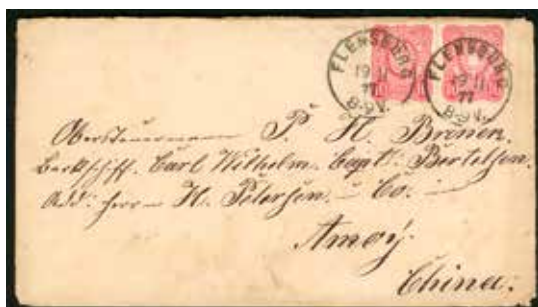 FLENSBURG
19 11
77
8-9 V.
FLENSBURG
19 11
77
8-9 V.
Obersteuermann P. H. Bronen.
Barkschiff. Carl Wilhelm. Capt. Bertelsen.
Add: Herrn H. Petersen. & Co.
Amoy.
China.